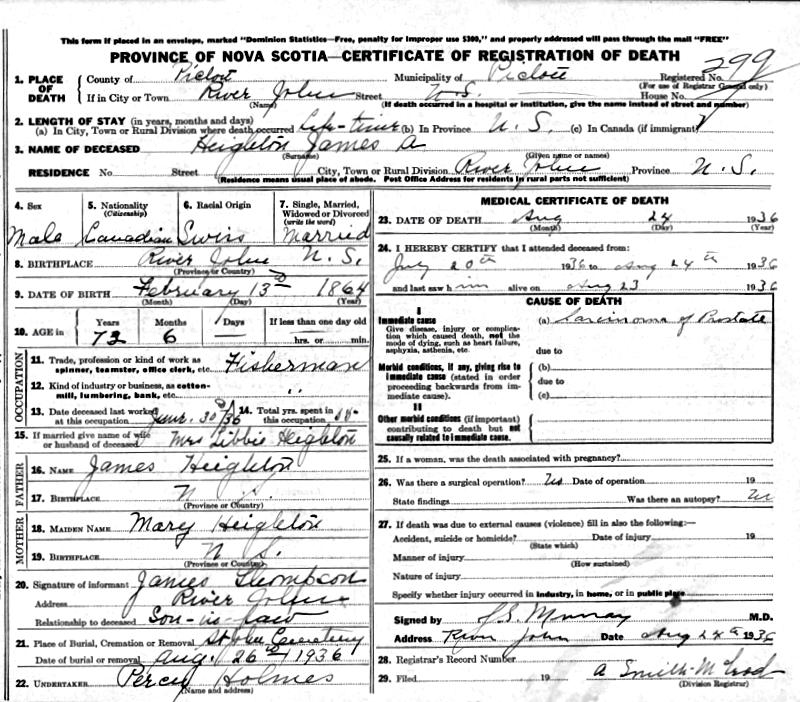 This form if placed in an envelope, marked "Dominion Statistics—Free, penalty for improper use $300," and properly addressed will pass through the mail "FREE"
PROVINCE OF NOVA SCOTIA—CERTIFICATE OF REGISTRATION OF DEATH
1. PLACE OF DEATH
County of Pictou Municipality of Pictou Registered No. 299
(For use of Registrar General only)
If in City or Town River John Street N.S. House No.
(Name) (If death occurred in a hospital or institution, give the name instead of street and number)
2. LENGTH OF STAY (in years, months and days)
(a) In City, Town or Rural Division where death occurred Life-time (b) In Province N.S. (c) In Canada (if immigrant)
3. NAME OF DECEASED Heighton James A
(Surname) (Given name or names)
RESIDENCE No. Street City, Town or Rural Division River John Province N.S.
(Residence means usual place of abode. Post Office Address for residents in rural parts not sufficient)
4. Sex 5. Nationality (Citizenship) 6. Racial Origin 7. Single, Married, Widowed or Divorced (write the word)
Male Canadian Swiss Married
8. BIRTHPLACE River John N.S.
(Province or Country)
9. DATE OF BIRTH February 13 1864
(Month) (Day) (Year)
10. AGE in Years Months Days If less than one day old
72 6 hrs. or min.
OCCUPATION
11. Trade, profession or kind of work as spinner, teamster, office clerk, etc. Fisherman
12. Kind of industry or business, as cotton-mill, lumbering, bank, etc. "
13. Date deceased last worked at this occupation June 30/36 14. Total yrs. spent in this occupation
15. If married give name of wife or husband of deceased Mrs Libbie Heighton
FATHER
16. NAME James Heighton
17. BIRTHPLACE N.S.
(Province or Country)
MOTHER
18. MAIDEN NAME Mary Heighton
19. BIRTHPLACE N.S.
(Province or Country)
20. Signature of informant James Thompson
Address River John
Relationship to deceased Son-in-law
21. Place of Burial, Cremation or Removal Cemetery
Date of burial or removal Aug. 26 1936
22. UNDERTAKER Percy Holmes
(Name and address)
MEDICAL CERTIFICATE OF DEATH
23. DATE OF DEATH Aug 24 1936
(Month) (Day) (Year)
24. I HEREBY CERTIFY that I attended deceased from:
July 20th 1936 to Aug 24th 1936
and last saw him alive on Aug 23 1936
CAUSE OF DEATH
I
Immediate cause (a) Carcinoma of Prostate
Give disease, injury or complication which caused death, not the mode of dying, such as heart failure, asphyxia, asthenia, etc.
due to
Morbid conditions, if any, giving rise to immediate cause (stated in order proceeding backwards from immediate cause).
(b)
due to
(c)
II
Other morbid conditions (if important) contributing to death but not causally related to immediate cause.
25. If a woman, was the death associated with pregnancy?
26. Was there a surgical operation? No Date of operation 19
State findings Was there an autopsy? No
27. If death was due to external causes (violence) fill in also the following:—
Accident, suicide or homicide? Date of injury 19
(State which)
Manner of injury
(How sustained)
Nature of injury
Specify whether injury occurred in industry, in home, or in public place
Signed by Murray M.D.
Address River John Date Aug 24th 1936
28. Registrar's Record Number
29. Filed 19 A Smith-McLeod
(Division Registrar)